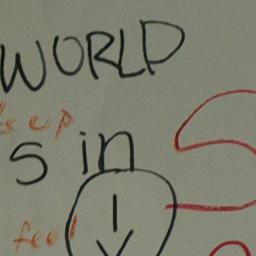 WORLD
's up
s in
feel